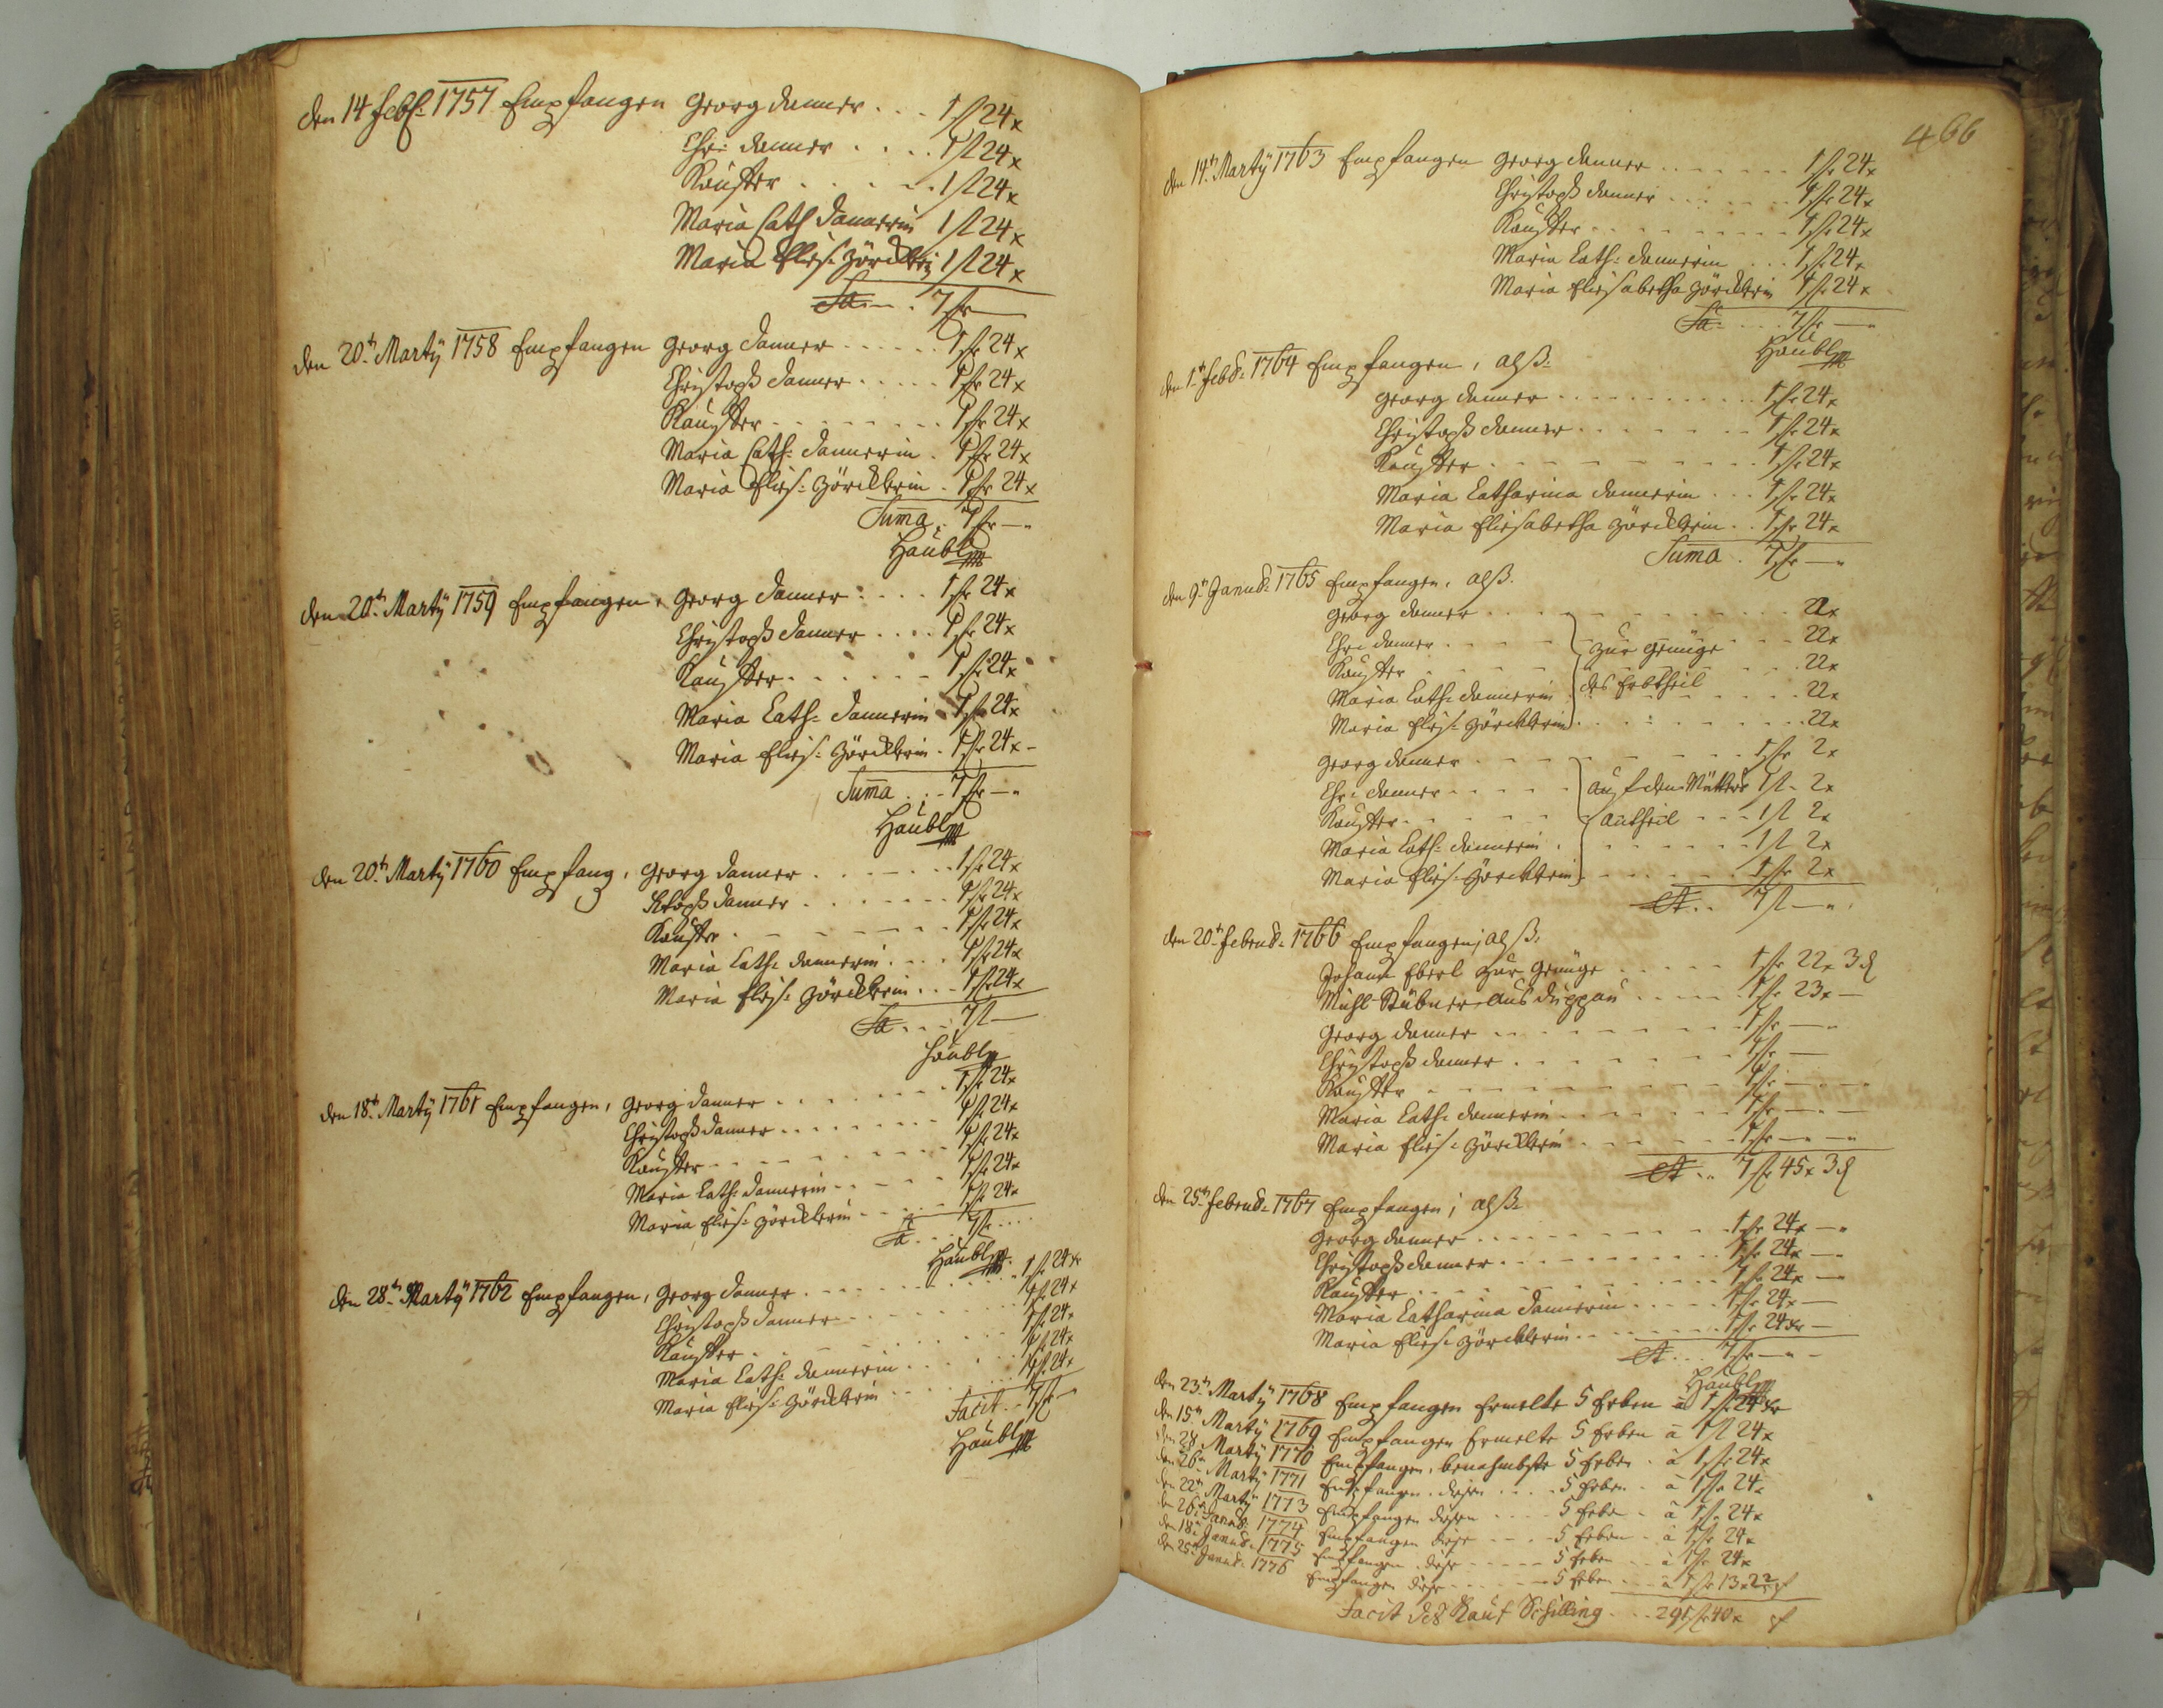 den 14 feb: 1757 Empfangen Georg Danner . . . 1 fl 24 x
Chr: Danner . . . . 1 fl 24 x
Kauster . . . . . 1 fl 24 x
Maria Cath Dannerin 1 fl 24 x
Maria Elis: 1 fl 24 x
Sa — . 7 fl —
den 20t. Marty 1758 Empfangen Georg Danner . . . . . . 1 fl 24 x
Christoph Danner . . . . . 1 fl 24 x
Kauster . . . . . . . . 1 fl 24 x
Maria Cath: Dannerin . 1 fl 24 x
Maria Elis: Zörcklerin . 1 fl 24 x
Suma . 7 fl —
Häubl
den 20t. Marty 1759 Empfangen, Georg Danner . . . . 1 fl 24 x
Christoph Danner . . . . 1 fl 24 x
Kauster . . . . . . . 1 fl 24 x
Maria Cath: Dannerin . 1 fl 24 x
Maria Elis: Zörcklerin . 1 fl 24 x —
Suma . . . 7 fl —
Häubl
den 20t. Marty 1760 Empfang, Georg Danner . . . . . . . 1 fl 24 x
Danner . . . . . . . 1 fl 24 x
Kauster . . . . . . . . 1 fl 24 x
Maria Cath: Dannerin . . . . 1 fl 24 x
Maria Elis: Zörcklerin . . . 1 fl 24 x
Sa . . . . 7 fl —
Häubl
den 18t. Marty 1761 Empfangen, Georg Danner . . . . . . . 1 fl 24 x
Christoph Danner . . . . . . . . 1 fl 24 x
Kauster . . . . . . . . . . 1 fl 24 x
Maria Cath: Dannerin . . . . . 1 fl 24 x
Maria Elis: Zörcklerin . . . . . 1 fl 24 x
Sa . . . 7 fl . . . .
Häubl
den 28t. Marty 1762 Empfangen, Georg Danner . . . . . . . . . . 1 fl 24 x
Christoph Danner . . . . . . . . 1 fl 24 x
Kauster . . . . . . . . . . . 1 fl 24 x
Maria Cath: Dannerin . . . . . . . 1 fl 24 x
Maria Elis: Zörcklerin . . . . . . 1 fl 24 x
Facit . . 7 fl —
Häubl
466
den 14t. Marty 1763 Empfangen Georg Danner . . . . . . . 1 fl 24 x
Christoph Danner . . . . . . . 1 fl 24 x
Kauster . . . . . . . . . . 1 fl 24 x
Maria Cath: Dannerin . . . 1 fl 24 x
Maria Elisabetha Zörcklerin 1 fl 24 x
Sa . . . . 7 fl —
Häubl
den 1t. feb: 1764 Empfangen, alß:
Georg Danner . . . . . . . . . . . 1 fl 24 x
Christoph Danner . . . . . . . 1 fl 24 x
Kauster . . . . . . . . . . . 1 fl 24 x
Maria Catharina Dannerin . . . 1 fl 24 x
Maria Elisabetha Zörcklerin . . 1 fl 24 x
Suma . 7 fl —
den 9t. Janu: 1765 Empfangen, alß.
Georg Danner . . . . . . . . . . . . . 22 x
Chr: Danner . . . . . zur genüge . . . . 22 x
Kauster . . . . . . . . . . . . 22 x
Maria Cath: Dannerin . des Erbtheil . . . . . 22 x
Maria Elis: Zörcklerin . . . . . . . . . . 22 x
Georg Danner . . . . . . . . . . . 1 fl 2 x
Chr: Danner . . . . . auf den Mütter 1 fl 2 x
Kauster . . . . . . . antheil . . . 1 fl 2 x
Maria Cath: Dannerin . . . . . . . 1 fl 2 x
Maria Elis: Zörcklerin . . . . . . 1 fl 2 x
. . 7 fl —
den 20t. Febru: 1766 Empfangen, alß:
Johann Eberl zur genüge . . . . . 1 fl 22 x 3 d
Mühl Stübner aus Duppau . . . . . 1 fl 23 x —
Georg Danner . . . . . . . . . . 1 fl —
Christoph Danner . . . . . . . . 1 fl —
Kauster . . . . . . . . . . . . 1 fl —
Maria Cath: Dannerin . . . . . . . 1 fl —
Maria Elis: Zörcklerin . . . . . . . 1 fl —
. . 7 fl 45 x 3 d
den 25t. Febru: 1767 Empfangen, alß:
Georg Danner . . . . . . . . . . 1 fl 24 x —
Christoph Danner . . . . . . . . . 1 fl 24 x —
Kauster . . . . . . . . . . . . 1 fl 24 x —
Maria Catharina Dannerin . . . . . 1 fl 24 x —
Maria Elis: Zörcklerin . . . . . . . 1 fl 24 x —
. . . 7 fl —
Häubl
den 23t. Marty 1768 Empfangen Ermelte 5 Erben a 1 fl 24 x
den 15t. Marty 1769 Empfangen Ermelte 5 Erben à 1 fl 24 x
den 28. Marty 1770 Empfangen, benahmbste 5 Erben . à 1 fl 24 x
den 26t. Marty 1771 Empfangen diesen . . . . 5 Erben . à 1 fl 24 x
den 22t. Marty 1773 Empfangen diesen . . . . 5 Erbe . à 1 fl 24 x
den 26t. Janu: 1774 Empfangen diese . . . . 5 Erben . à 1 fl 24 x
den 18t. Janu: 1775 Empfangen diese . . . . . 5 Erben . . à 1 fl 24 x
den 25t. Janu: 1776 Empfangen diese . . . . . 5 Erben . . . à 1 fl 13 x
Facit des Kauf Schilling . . . 291 fl 40 x